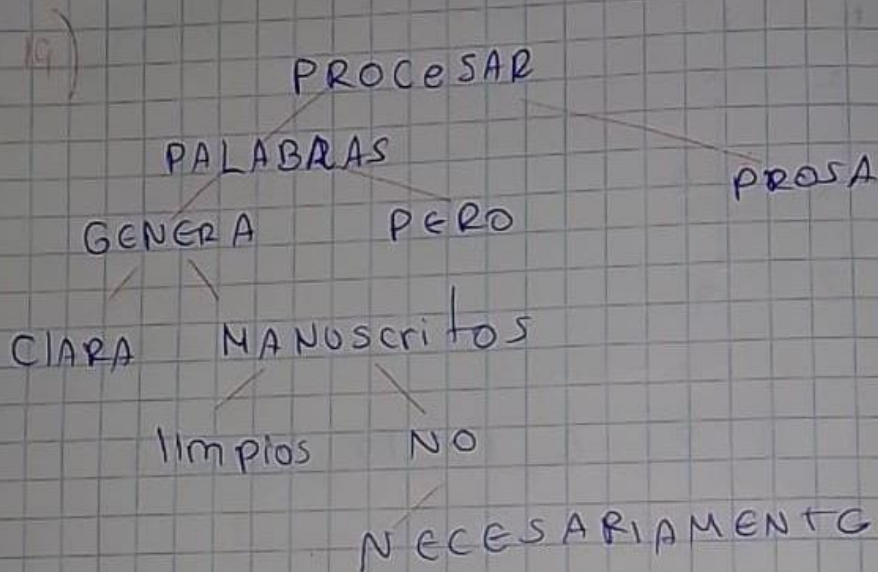 19)
PROCeSAR
PALABRAS
PROSA
GENERA PERO
ClARA MANUscritos
limpios NO
NECESARIAMENTE